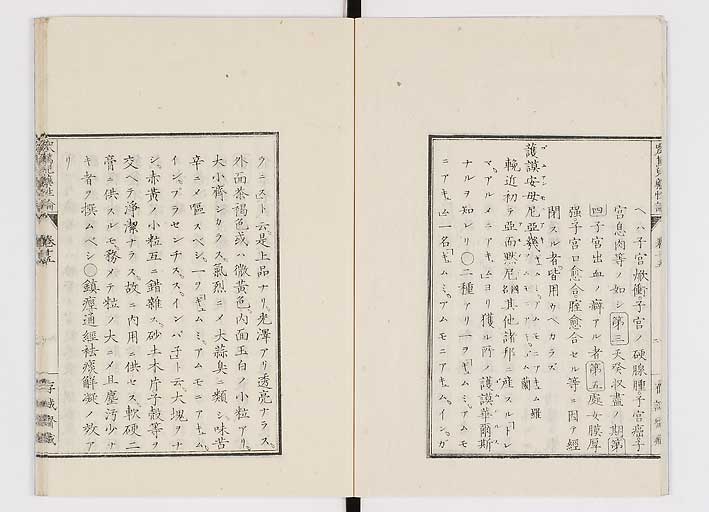 ヘハ子宮焮衝子宮ノ硬腺腫子宮癌子
宮息肉等ノ如シ第三天癸収盡ノ期第
四子宮出血ノ癖アル者第五處女膜厚
强子宮口愈合腟愈合セル等ニ因テ經
閉スル者皆用ウベカラズ
護謨安母尼亞幾
輓近初テ亞而黙尼其他諸邦ニ産スル「ドレ
マ」アルメニアキュムヨリ獲ル所ノ護謨華爾斯
ナルヲ知レリ〇二種アリ一ヲギュミアムモ
ニアキュム一名ギュミアムモニアキュムインガ
ラニスト云是上品ナリ光澤アリ透亮ナラス
外面茶褐色或ハ微黄色内面玉白ノ小粒アリ
大小齊シカラス氣烈ニメ大蒜臭ニ類シ味苦
辛ニメ嘔スベシ一ヲギュミアムモニアキュム
インプラセンチススインパ子ト云大塊ヲナ
シ赤黄ノ小粒互ニ錯雜ス砂土木片子殻等ヲ
交ヘテ淨潔ナラス故ニ内用ニ供セス軟硬二
膏ニ供スルモ務メテ粒ノ大ニメ且塵汚少ナ
キ者ヲ撰ムベシ〇鎮痙通經袪痰觧凝ノ效ア
リ
卷十五